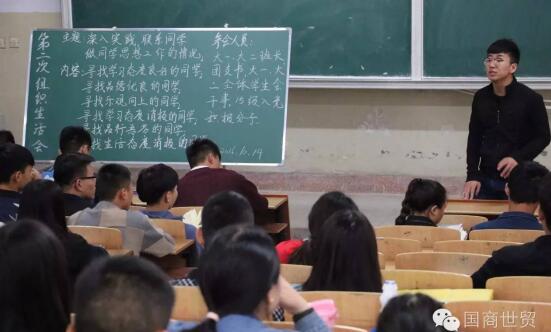 第二次组织生活会
主题：深入实践，联系同学
做同学思想工作的情况，
内容：寻找学习态度良好的同学，
寻找品德优良的同学，
寻找乐观向上的同学，
寻找学习态度消极的同学，
寻找品行恶劣的同学，
寻找生活态度消极的
参会人员：
大一、大二班长
团支书，大一、大
二全体学生会
干事，15级入党
积极分子
10.19
国商世贸